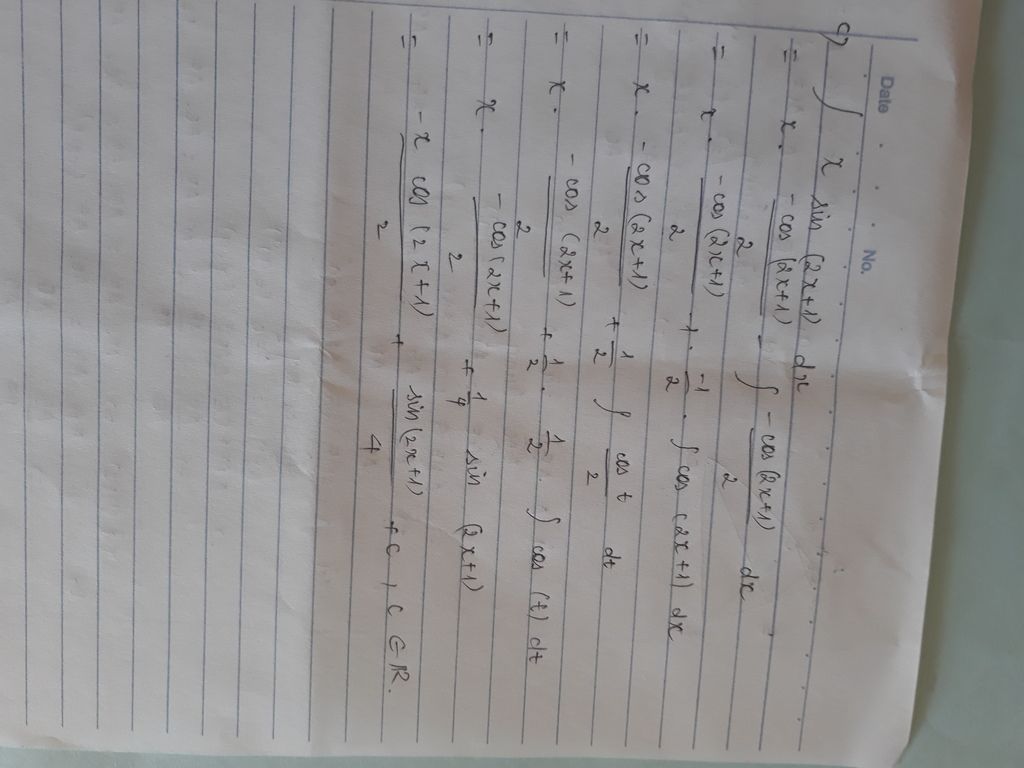 Date No.
9) ∫ x sin (2x+1) dx
= x. -cos (2x+1)/2 - ∫ -cos (2x+1)/2 dx
= x. -cos (2x+1)/2 - 1. -1/2 . ∫ cos (2x+1) dx
= x. -cos (2x+1)/2 + 1/2 ∫ cos t/2 dt
= x. -cos (2x+1)/2 + 1/2 . 1/2 . ∫ cos (t) dt
= x. -cos (2x+1)/2 + 1/4 sin (2x+1)
= -x cos (2x+1)/2 + sin (2x+1)/4 + C, C ∈ ℝ.